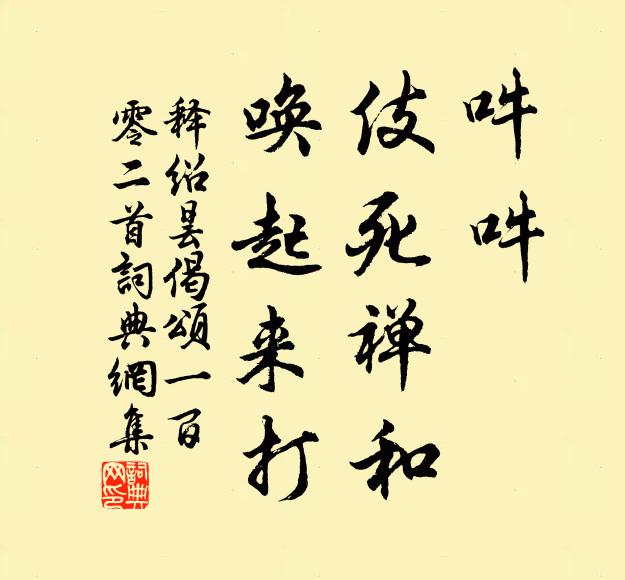 吽吽
伎死禅和
唤起来打
释绍昙偈颂一百
零二首詞典網集
詞典
网印